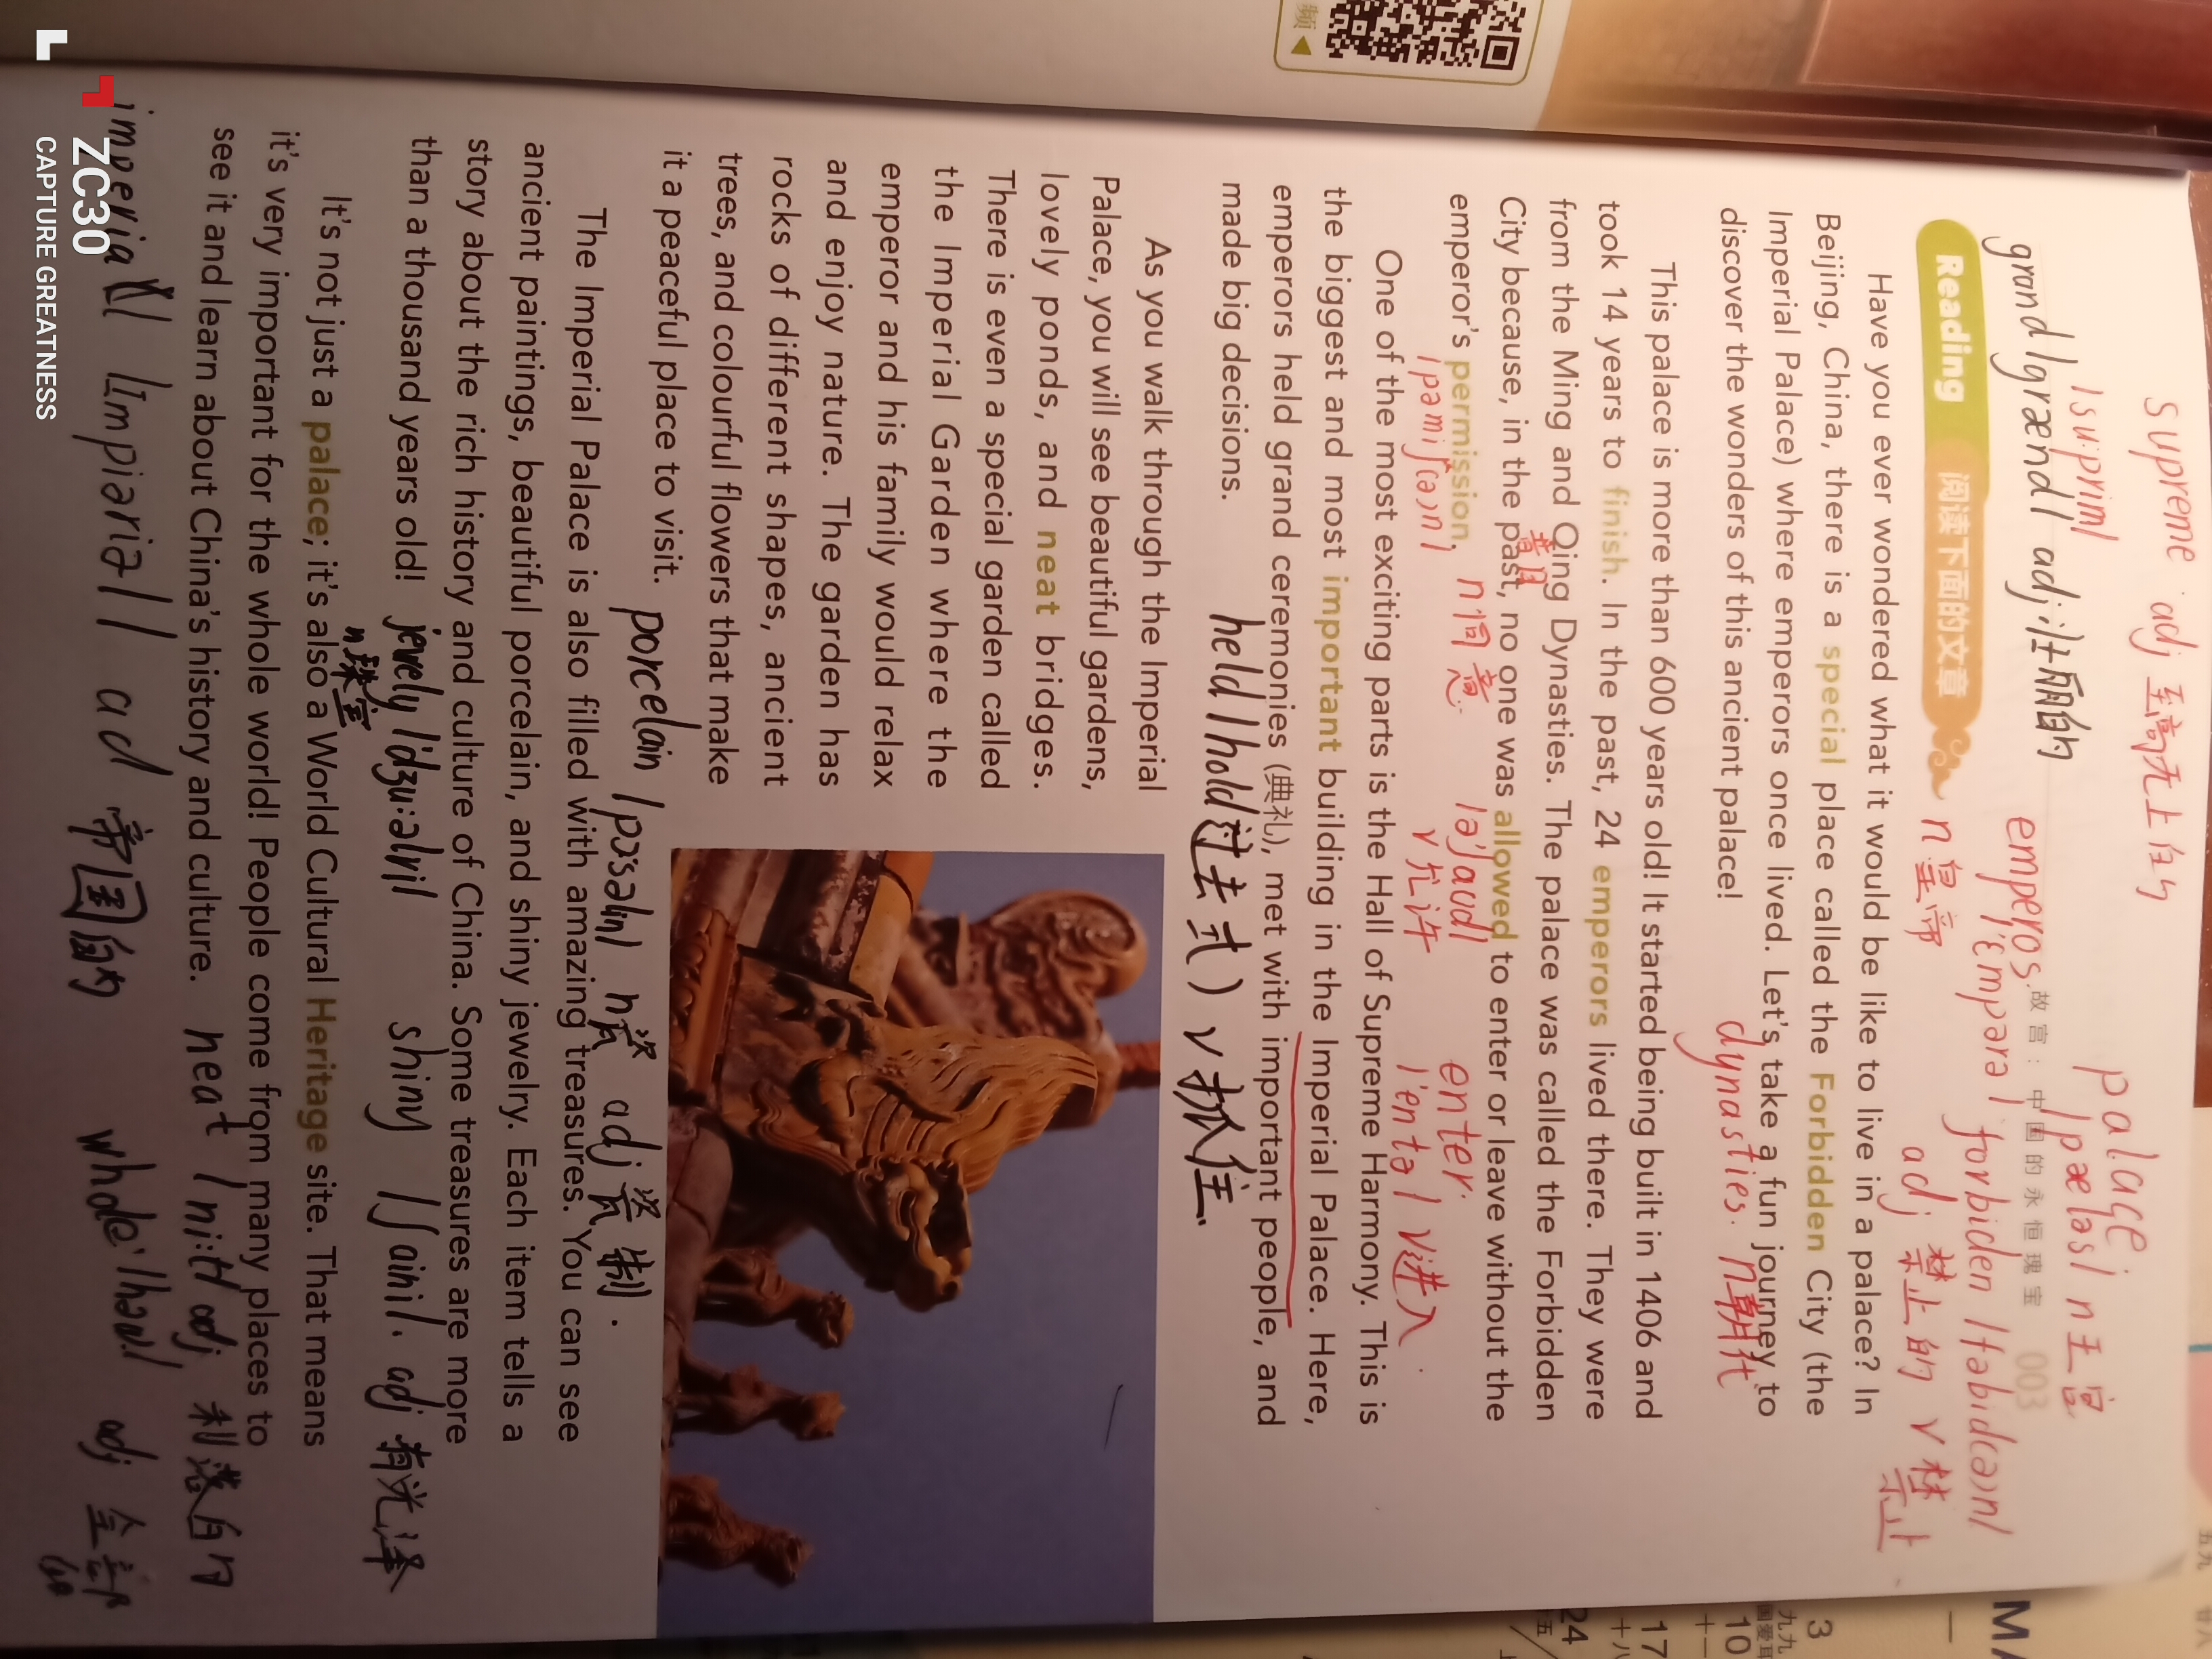 supreme adj 至高无上的
/su:prim/
palace
/pæləs/ n 王宫
故宫：中国的永恒瑰宝 003
grand /grænd/ adj.壮丽的
emperos.
/'empərə/
n 皇帝
forbiden /fəbid(ə)n/
adj 禁止的 v 禁止
Reading 阅读下面的文章
Have you ever wondered what it would be like to live in a palace? In
Beijing, China, there is a special place called the Forbidden City (the
Imperial Palace) where emperors once lived. Let's take a fun journey to
discover the wonders of this ancient palace!
dynasties. n朝代
This palace is more than 600 years old! It started being built in 1406 and
took 14 years to finish. In the past, 24 emperors lived there. They were
from the Ming and Qing Dynasties. The palace was called the Forbidden
City because, in the past, no one was allowed to enter or leave without the
emperor's permission.
n 同意
/ə'laud/
v 允许
enter.
/'entə/ v进入
One of the most exciting parts is the Hall of Supreme Harmony. This is
the biggest and most important building in the Imperial Palace. Here,
emperors held grand ceremonies (典礼), met with important people, and
made big decisions.
held /hold过去式) v 抓住.
As you walk through the Imperial
Palace, you will see beautiful gardens,
lovely ponds, and neat bridges.
There is even a special garden called
the Imperial Garden where the
emperor and his family would relax
and enjoy nature. The garden has
rocks of different shapes, ancient
trees, and colourful flowers that make
it a peaceful place to visit.
porcelain /pɔ:səlin/ n瓷 adj 瓷制.
The Imperial Palace is also filled with amazing treasures. You can see
ancient paintings, beautiful porcelain, and shiny jewelry. Each item tells a
story about the rich history and culture of China. Some treasures are more
than a thousand years old!
jewely /'dʒu:əlri/
n 珠宝
shiny /ʃaini/. adj 有光泽
It's not just a palace; it's also a World Cultural Heritage site. That means
it's very important for the whole world! People come from many places to
see it and learn about China's history and culture.
neat /ni:t/ adj 利落的
imperial /Impiəriəl/ ad 帝国的
whole /həʊl/ adj 全部
ZC30
CAPTURE GREATNESS
频
3
10
17
24